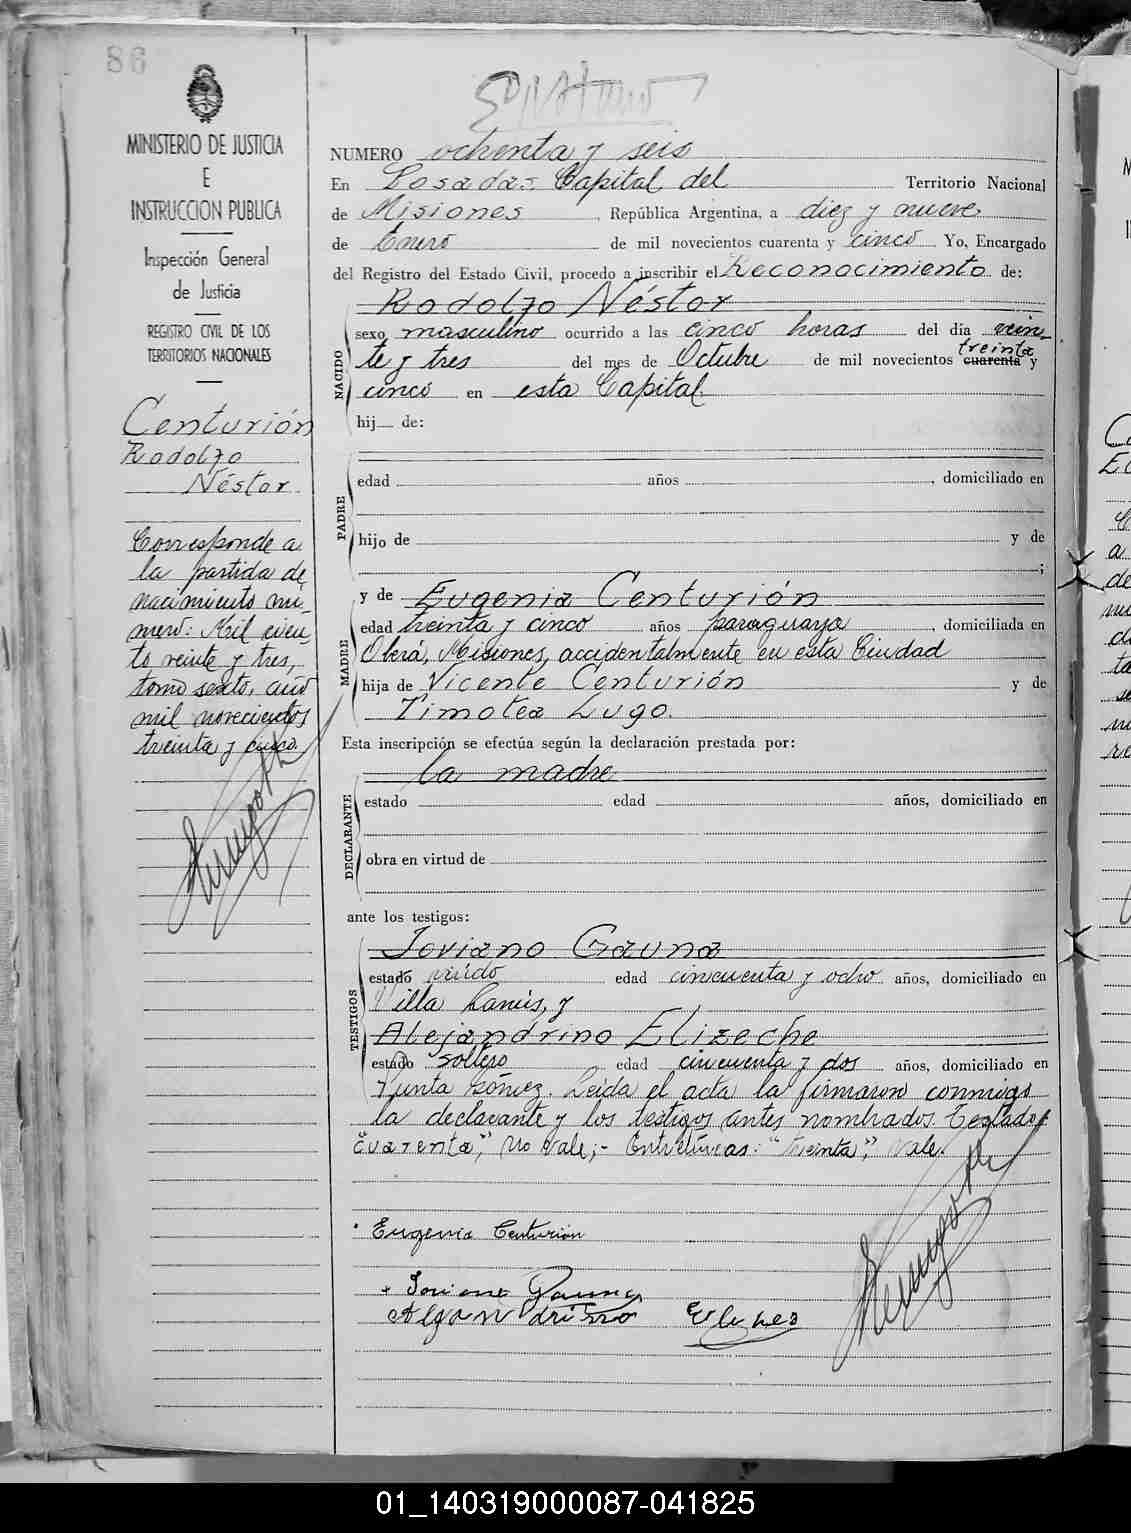 86
MINISTERIO DE JUSTICIA
E
INSTRUCCION PUBLICA
Inspección General
de Justicia
REGISTRO CIVIL DE LOS
TERRITORIOS NACIONALES
Centurión
Rodolfo
Néstor
Corresponde a
la partida de
nacimiento nú-
mero: Mil cien-
to veinte y tres,
tomo sexto, año
mil novecientos
treinta y cinco.
NUMERO ochenta y seis
En Posadas Capital del Territorio Nacional
de Misiones, República Argentina, a diez y nueve
de Enero de mil novecientos cuarenta y cinco Yo, Encargado
del Registro del Estado Civil, procedo a inscribir el Reconocimiento de:
NACIDO
Rodolfo Néstor
sexo masculino ocurrido a las cinco horas del día vein-
te y tres del mes de Octubre de mil novecientos cuarenta treinta y
cinco en esta Capital.
hij de:
PADRE
edad años , domiciliado en
hijo de y de
;
MADRE
y de Eugenia Centurión
edad treinta y cinco años paraguaya, domiciliada en
Oberá, Misiones, accidentalmente en esta Ciudad
hija de Vicente Centurión y de
Timotea Lugo.
Esta inscripción se efectúa según la declaración prestada por:
DECLARANTE
la madre
estado edad años, domiciliado en
obra en virtud de
ante los testigos:
TESTIGOS
Joviano Gauna
estado viúdo edad cincuenta y ocho años, domiciliado en
Villa Lanús, y
Alejandrino Elizeche
estado soltero edad cincuenta y dos años, domiciliado en
Punta Gómez. Leida el acta la firmaron conmigo
la declarante y los testigos antes nombrados. Testado:
"Cuarenta", No vale;- Entrelíneas: "treinta", vale.
Eugenia Centurión
Gauna
01_140319000087-041825